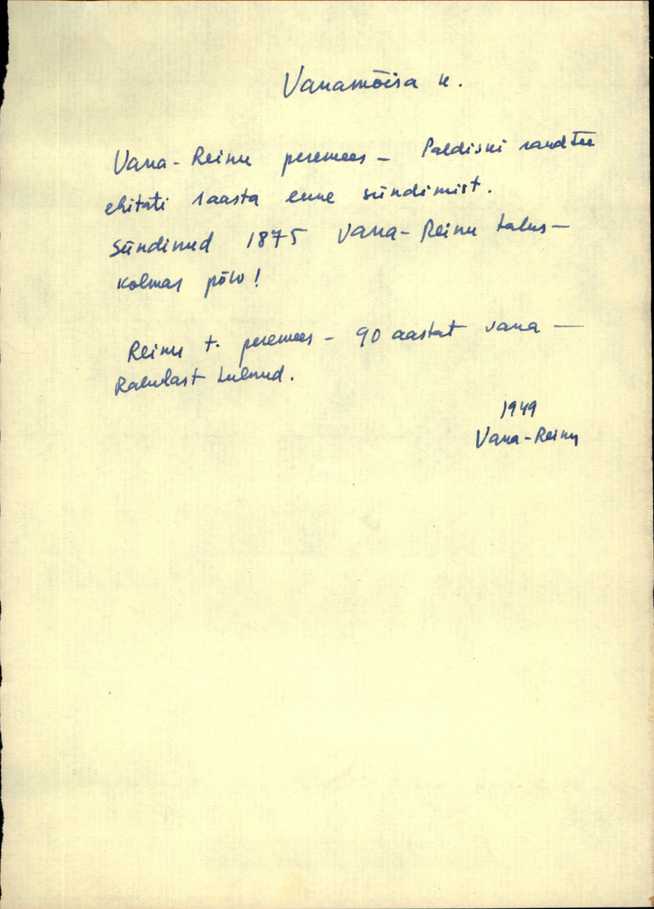 Vanamõisa k.
Vana-Reinu peremees – Paldiski raudtee
ehitati 1 aasta enne sündimist.
Sündinud 1875 Vana-Reinu talus –
kolmas põlv!
Reinu t. peremees – 90 aastat vana –
tulnud.
1949
Vana-Reinu